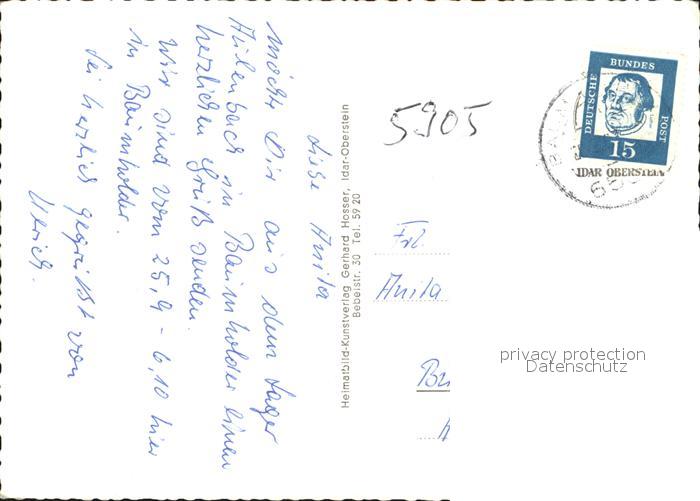 Liebe Anita
möchte Dir aus dem Lager
Aulenbach in Baumholder einen
herzlichen Gruß senden.
Wir sind vom 25,9 - 6,10 hier
in Baumholder.
Sei herzlich gegrüßt von
Ulrich.
Heimatbild-Kunstverlag Gerhard Hosser, Idar-Oberstein
Bebelstr. 30 Tel. 59 20
5905
DEUTSCHE
BUNDES
POST
Luther
15
IDAR OBERSTEIN
Frl.
Anita
privacy protection
Datenschutz